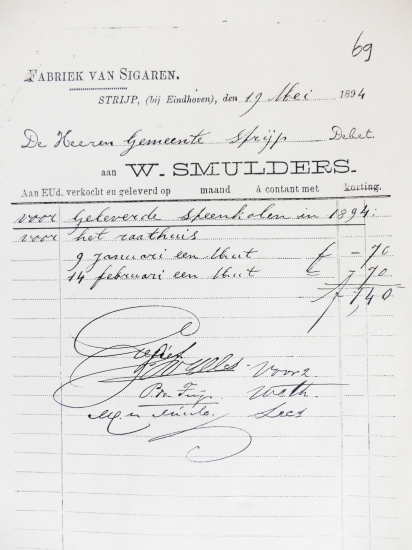 69
FABRIEK VAN SIGAREN.
STRIJP, (bij Eindhoven), den 19 Mei 1894
De Heeren Gemeente Strijp Debet
aan W. SMULDERS.
Aan EUd. verkocht en geleverd op maand á contant met korting.
voor Geleverde Steenkolen in 1894:
voor het raathuis
9 januari een Mut f - 70
14 februari een Mut " - 70
f 1,40
Voorz.
Weth.
Secs